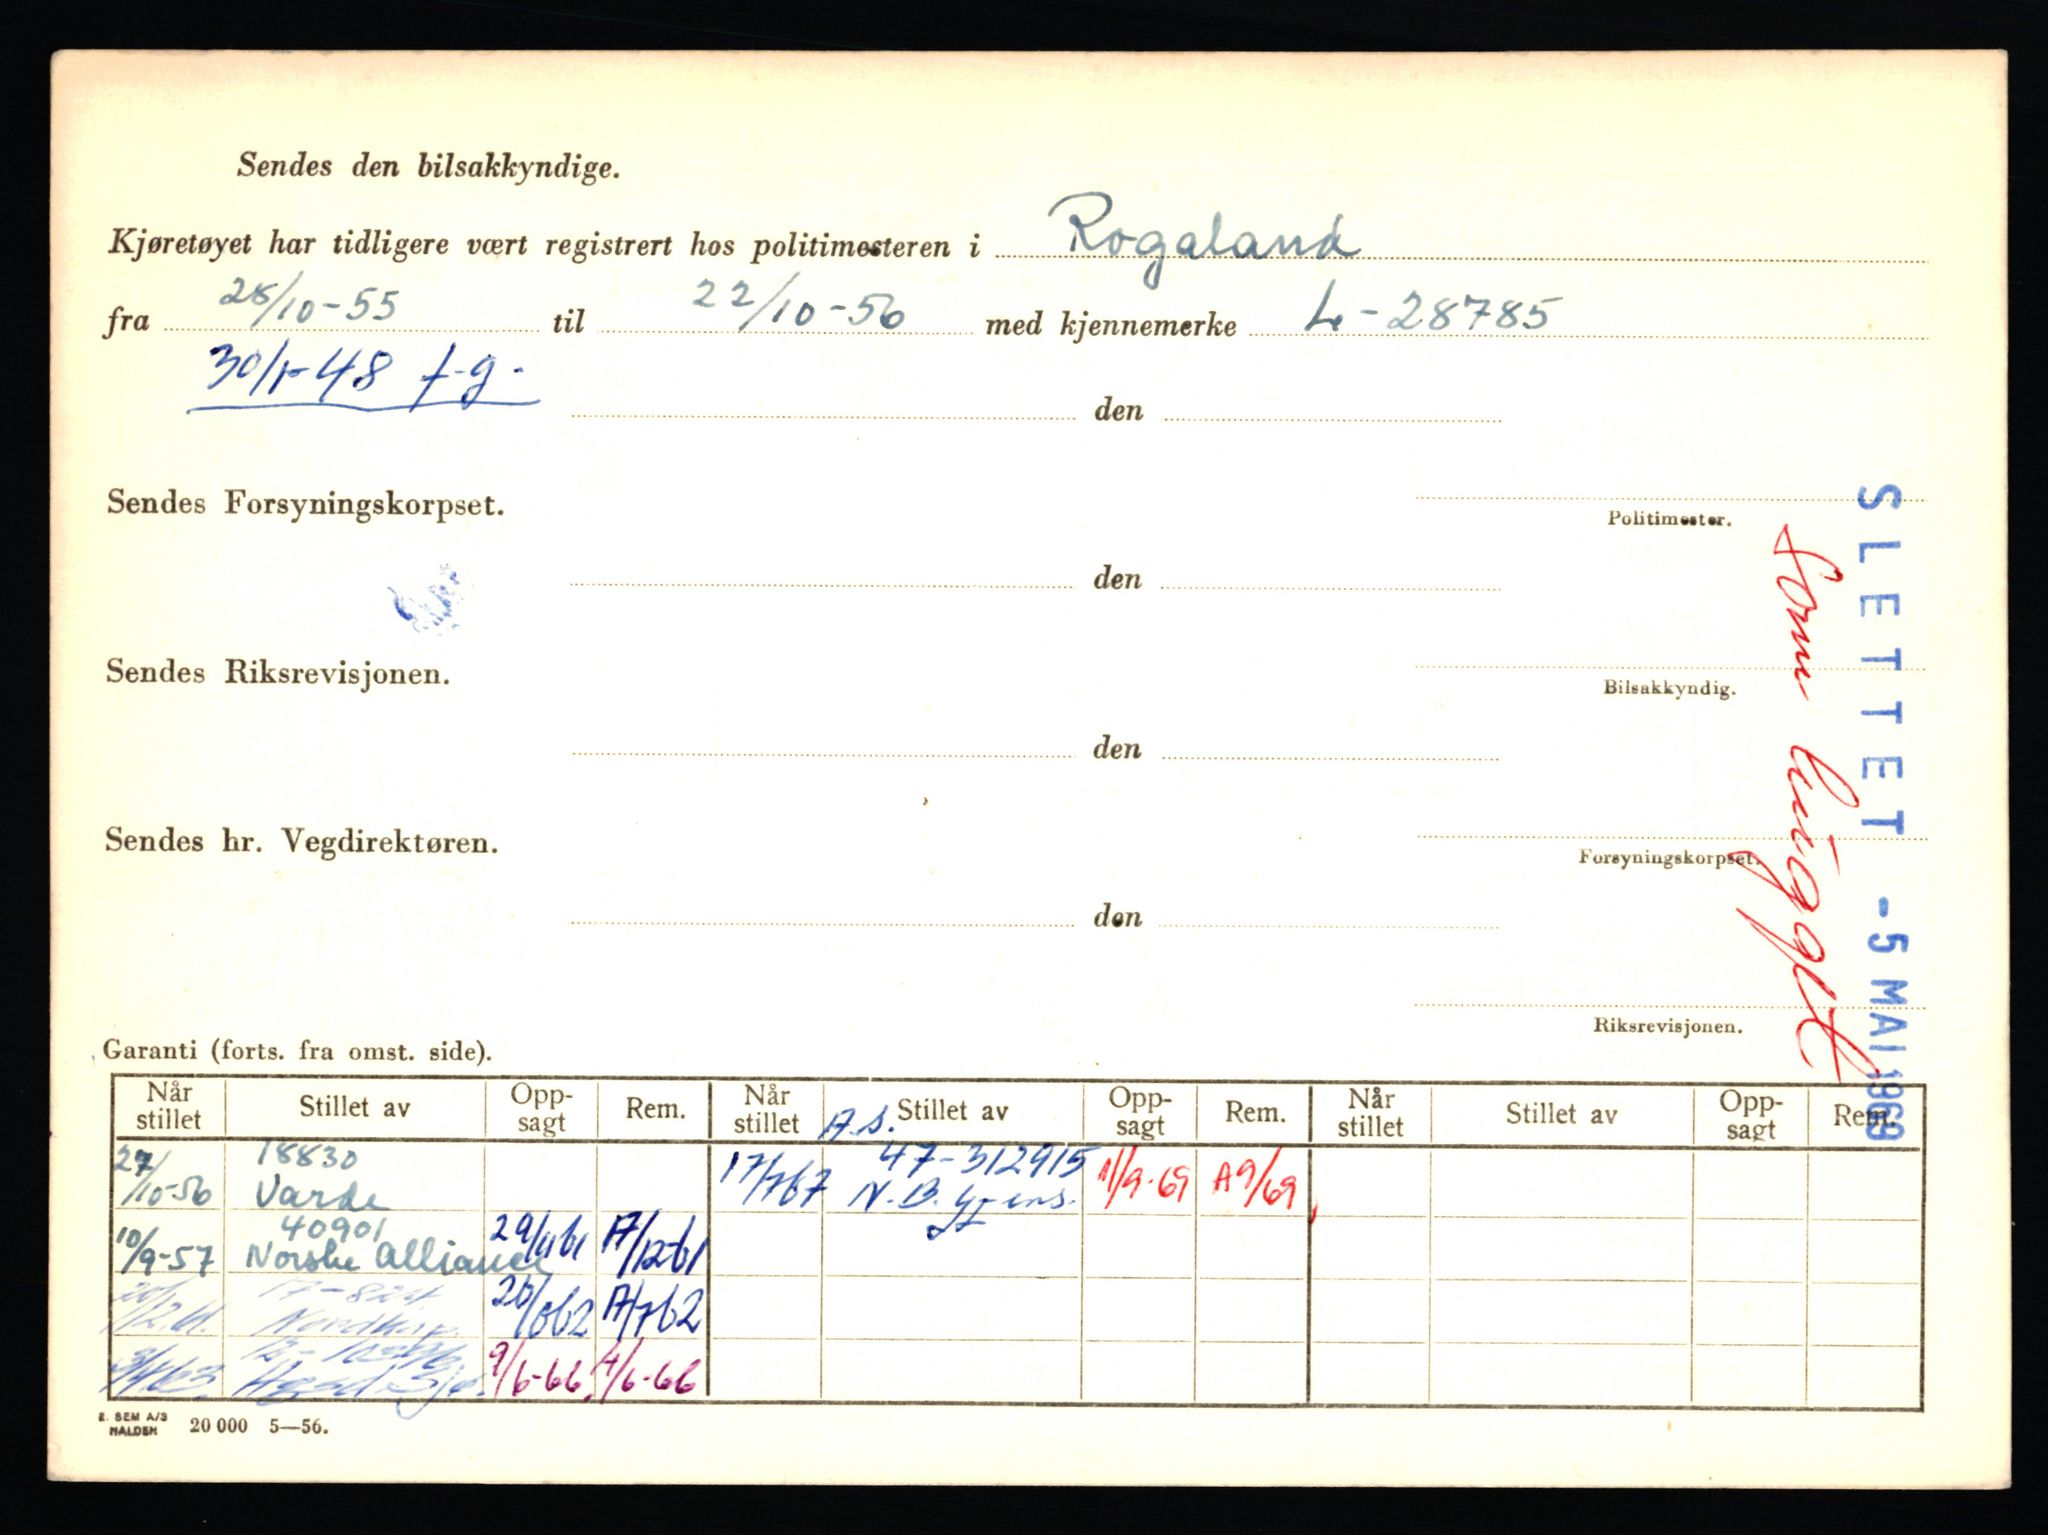 Sendes den bilsakkyndige.
Kjøretøyet har tidligere vært registrert hos politimesteren i Rogaland
fra 28/10-55 til 22/10-56 med kjennemerke L-28785
30/1-48 f.g.
den
Sendes Forsyningskorpset.
Politimester.
den
Sendes Riksrevisjonen.
Bilsakkyndig.
den
Sendes hr. Vegdirektøren.
Forsyningskorpset.
den
Riksrevisjonen.
SLETTET -5 MAI 1969
Som
Garanti (forts. fra omst. side).
Når stillet Stillet av Opp-sagt Rem. Når stillet Stillet av Opp-sagt Rem. Når stillet Stillet av Opp-sagt Rem.
A.S.
27/10-56 18830 Varde
17/767 47-312915 N.B. 11/9-69 A9/69
10/9-57 40901 Norske Alliance 29/1161 A/12-61
17-824 26/662 A/762
9/6-66 A/6-66
E. SEM A/S
HALDEN
20 000 5—56.